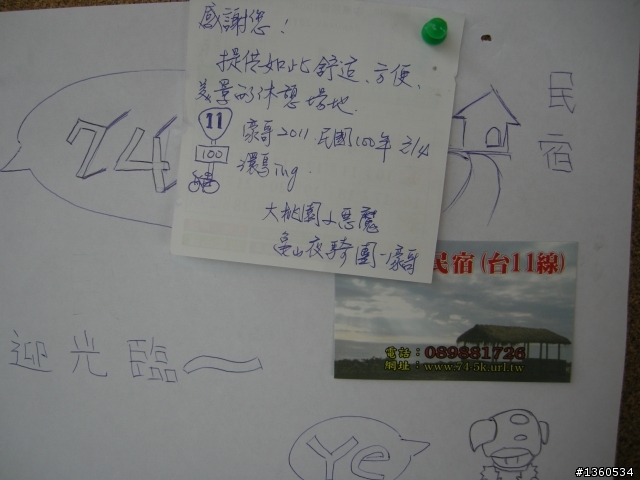 感謝您！
提供如此舒適、方便、
美景的休憩場地.
11
100
豪哥2011 民國100年 2/4
環島ing.
大桃園小惡魔
龜山夜騎團-豪哥
74
民
宿
民宿(台11線)
電話：089881726
網址：www.74-5k.url.tw
迎光臨～
Ye
#1360534